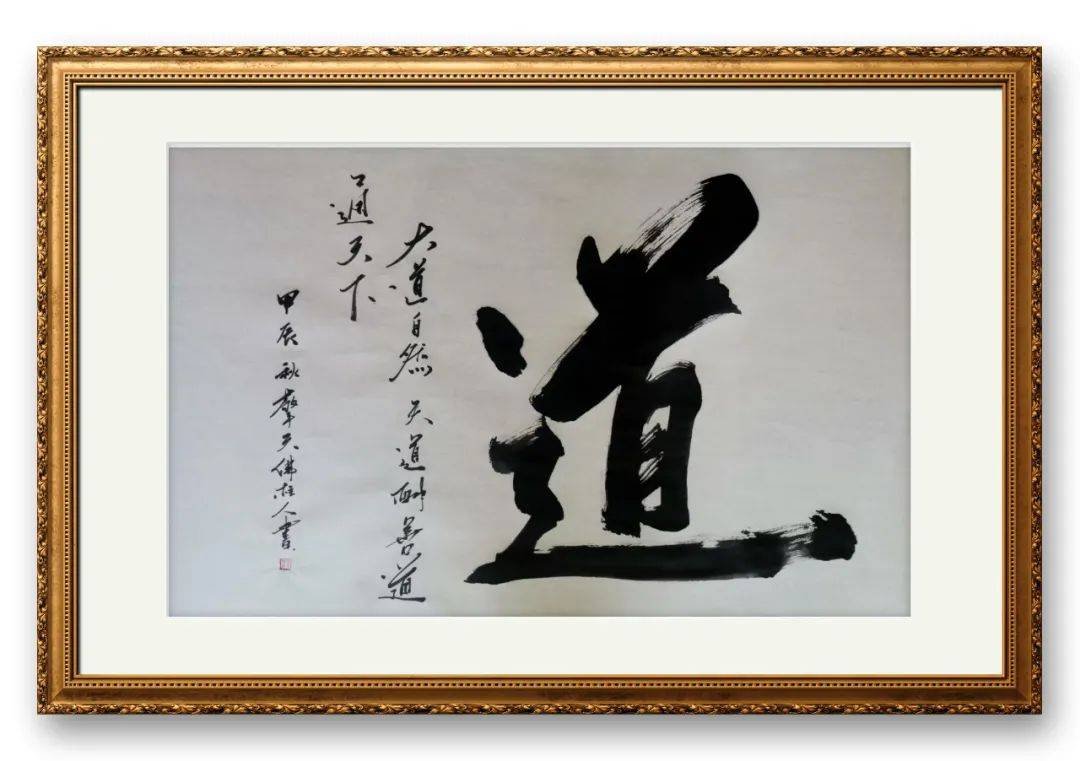 道
大道自然天道酬善道
通天下
甲辰秋 天佛枉人書